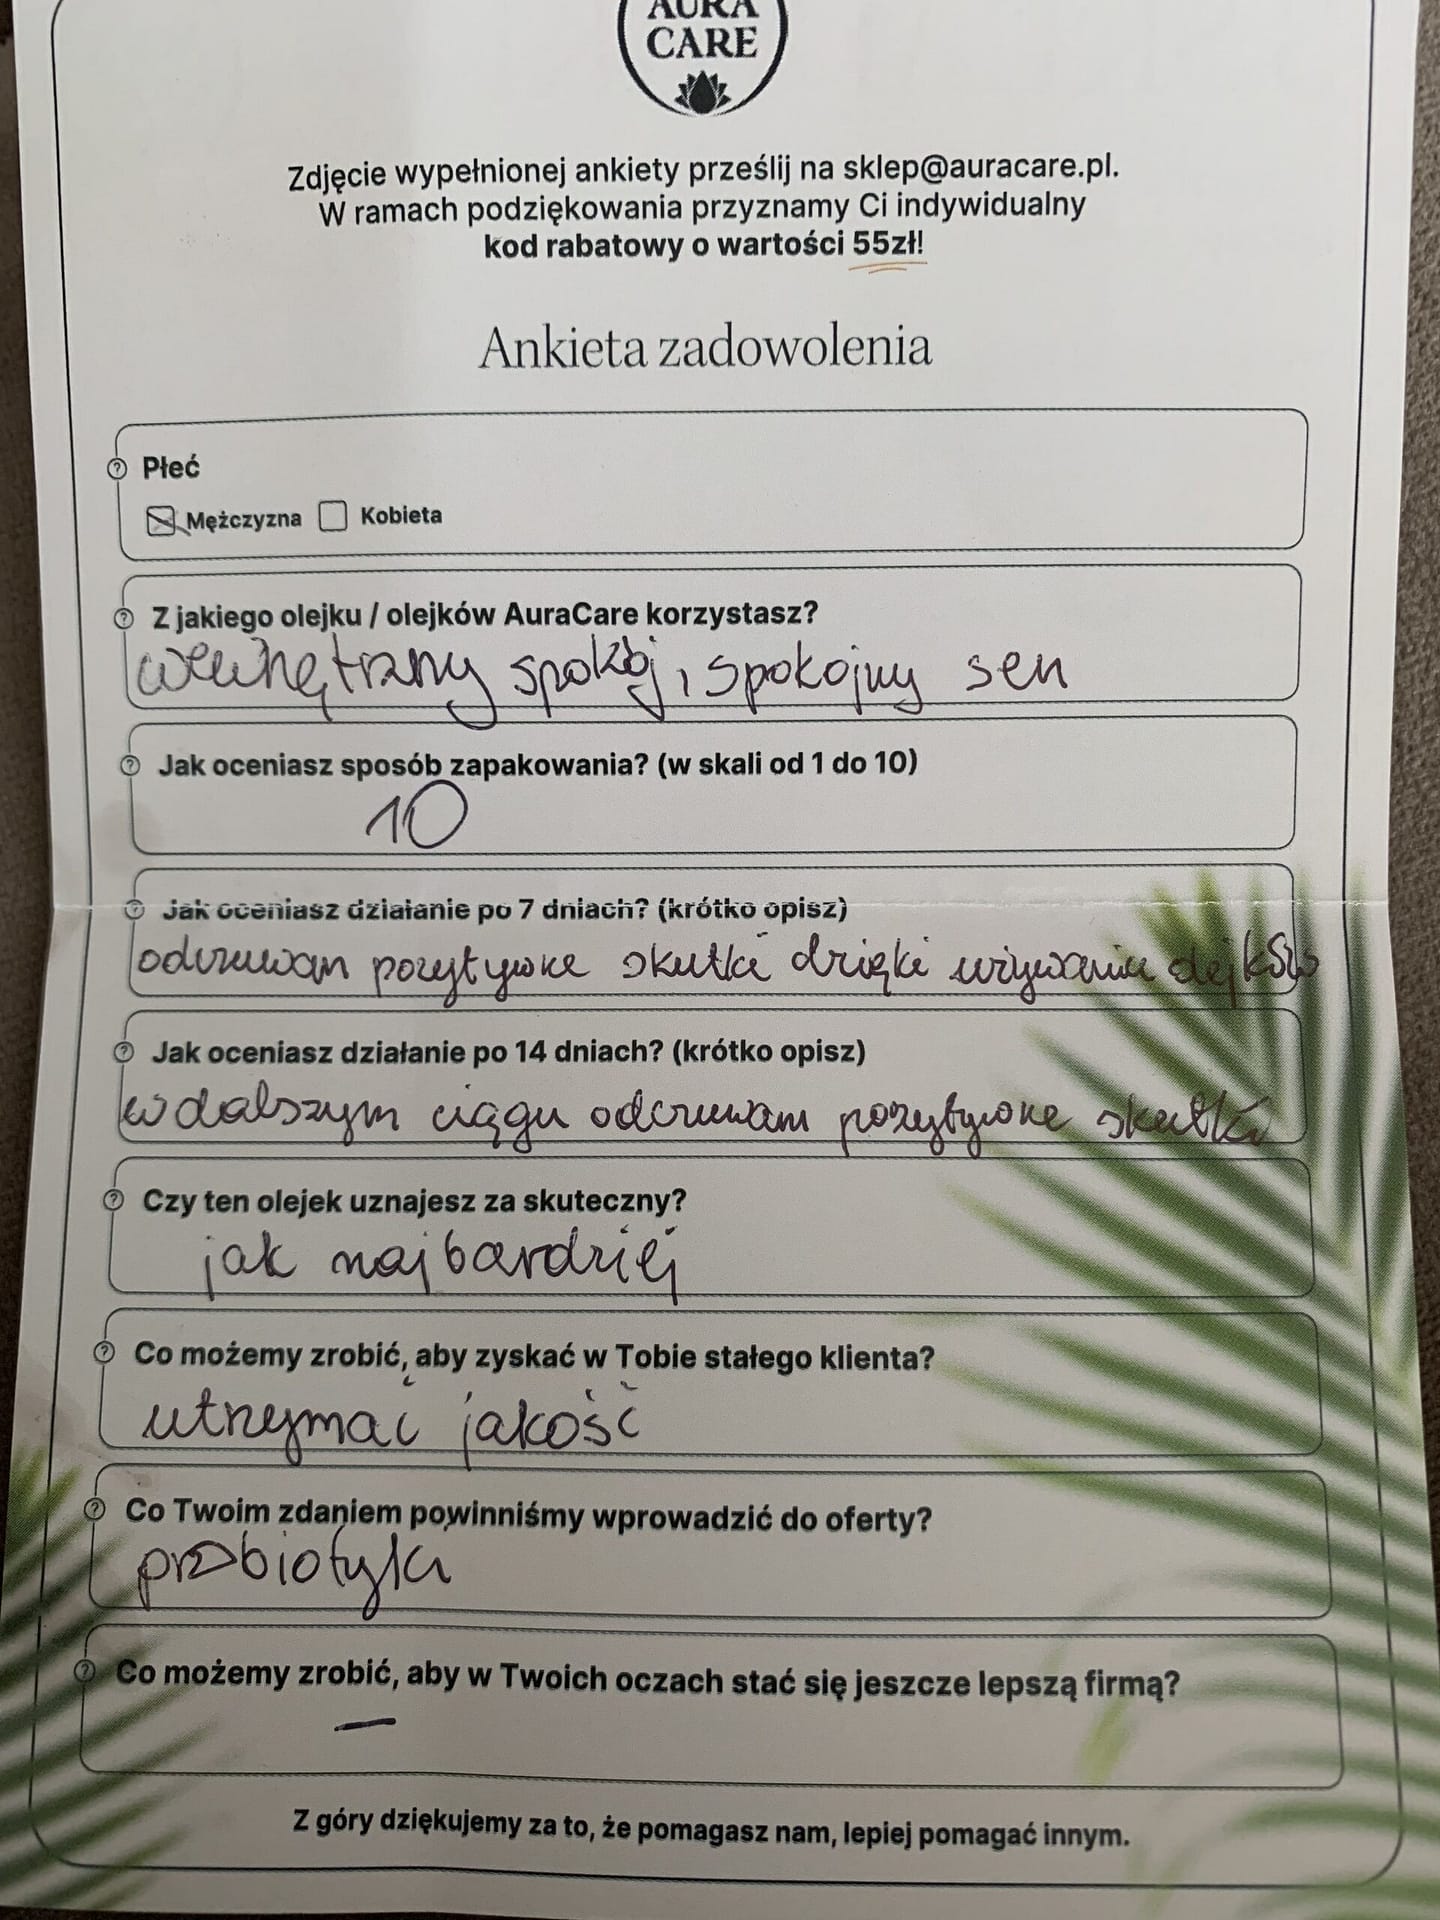 AURA
CARE
Zdjęcie wypełnionej ankiety prześlij na sklep@auracare.pl.
W ramach podziękowania przyznamy Ci indywidualny
kod rabatowy o wartości 55zł!
Ankieta zadowolenia
Płeć
Mężczyzna Kobieta
Z jakiego olejku / olejków AuraCare korzystasz?
wewnętrzny spokój, spokojny sen
Jak oceniasz sposób zapakowania? (w skali od 1 do 10)
10
Jak oceniasz działanie po 7 dniach? (krótko opisz)
odczuwam pozytywne skutki dzięki używaniu olejków
Jak oceniasz działanie po 14 dniach? (krótko opisz)
w dalszym ciągu odczuwam pozytywne skutki
Czy ten olejek uznajesz za skuteczny?
jak najbardziej
Co możemy zrobić, aby zyskać w Tobie stałego klienta?
utrzymać jakość
Co Twoim zdaniem powinniśmy wprowadzić do oferty?
probiotyki
Co możemy zrobić, aby w Twoich oczach stać się jeszcze lepszą firmą?
—
Z góry dziękujemy za to, że pomagasz nam, lepiej pomagać innym.